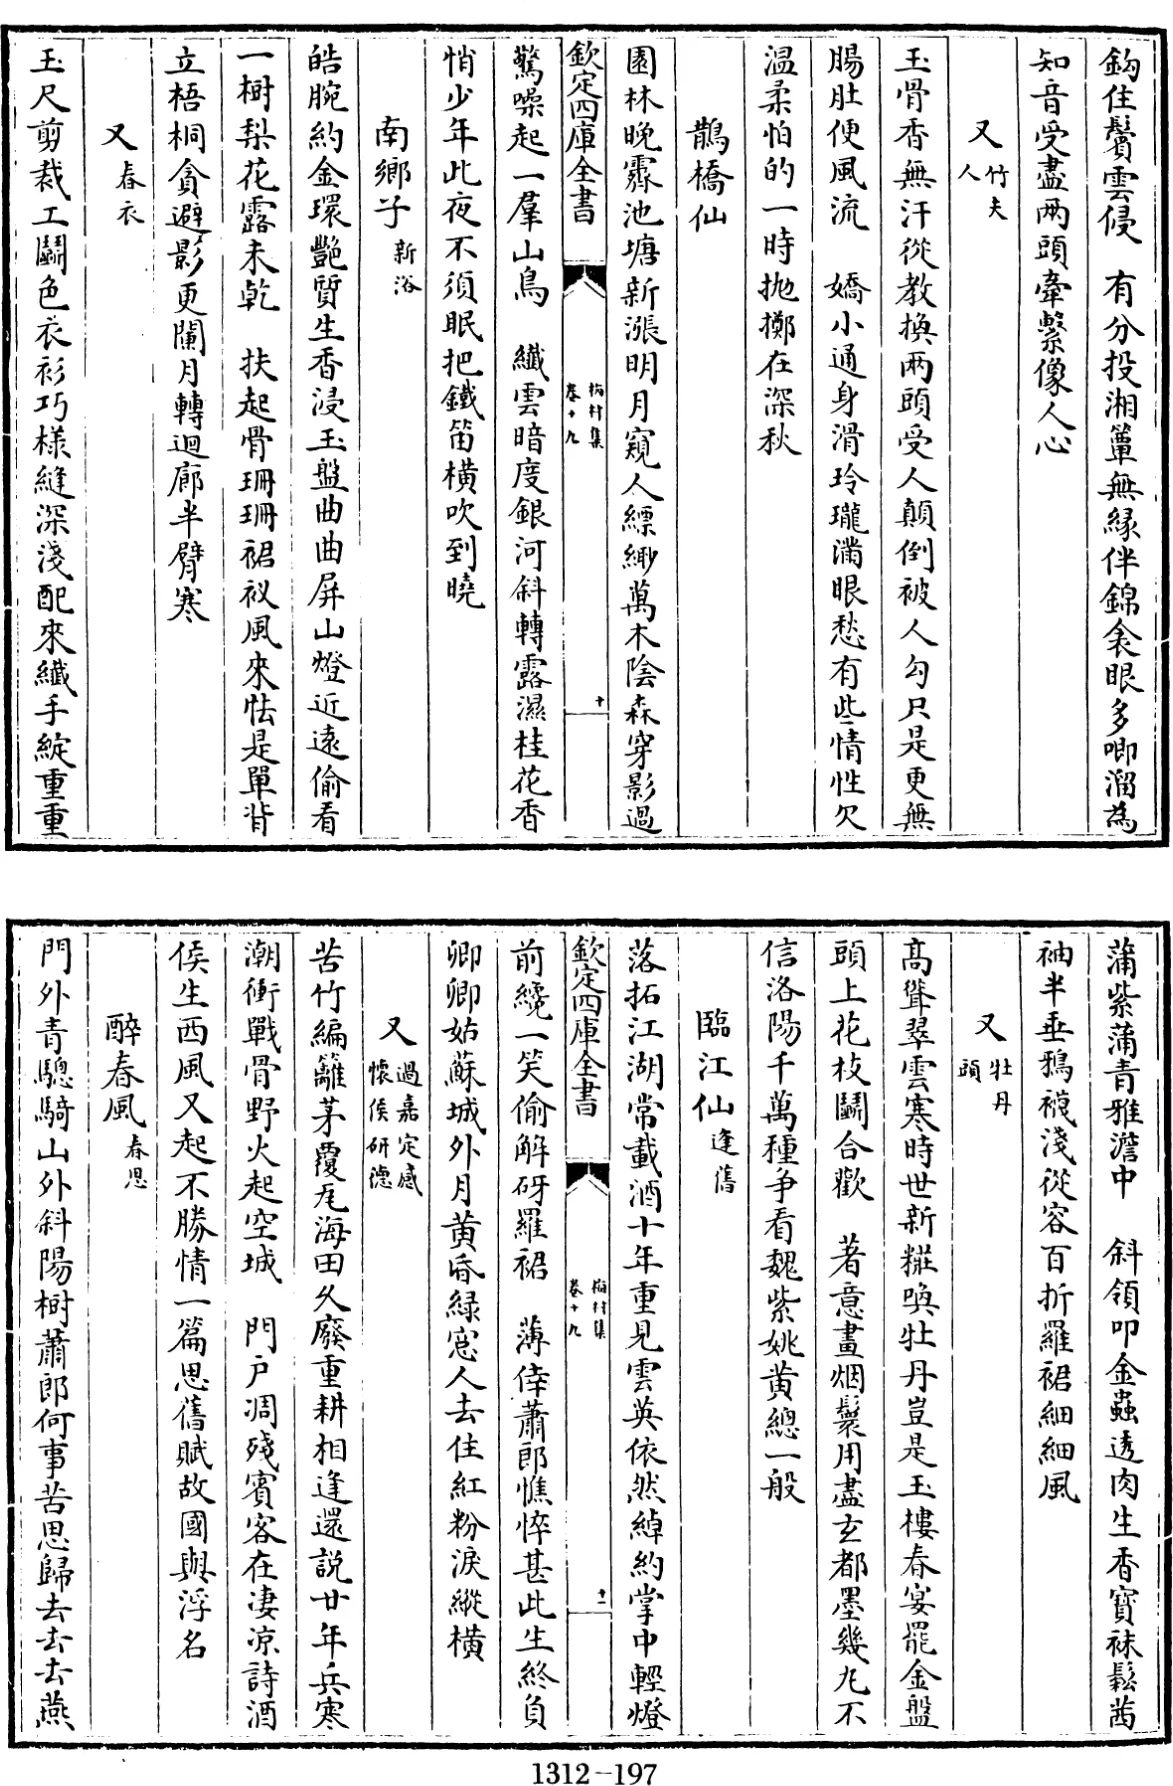 鈎住鬢雲侵　有分投湘簟無縁伴錦衾眼多唧溜為
知音受盡兩頭牽繫像人心
又 竹夫人
玉骨香無汗從教換兩頭受人顛倒被人勾只是更無
腸肚便風流　嬌小通身滑玲瓏滿眼愁有些情性欠
温柔怕的一時抛擲在深秋
鵲橋仙
園林晚霽池塘新漲明月窺人縹緲萬木陰森穿影過
欽定四庫全書 梅村集 卷十九 十
驚噪起一羣山鳥　纖雲暗度銀河斜轉露濕桂花香
悄少年此夜不須眠把鐵笛橫吹到曉
南鄉子 新浴
皓腕約金環艷質生香浸玉盤曲曲屏山燈近遠偷看
一樹梨花露未乾　扶起骨珊珊裙衩風來怯是單背
立梧桐貪避影更闌月轉迴廊半臂寒
又 春衣
玉尺剪裁工鬭色衣衫巧様縫深淺配來纖手綻重重
蒲紫蒲青雅澹中　斜領叩金蟲透肉生香寶袜鬆茜
袖半垂鴉襪淺從容百折羅裙細細風
又 牡丹頭
高聳翠雲寒時世新糚喚牡丹豈是玉樓春宴罷金盤
頭上花枝鬭合歡　著意畫烟鬟用盡玄都墨幾丸不
信洛陽千萬種爭看魏紫姚黄總一般
臨江仙 逢舊
落拓江湖常載酒十年重見雲英依然綽約掌中輕燈
欽定四庫全書 梅村集 卷十九 十一
前纔一笑偷解砑羅裙　薄倖蕭郎憔悴甚此生終負
卿卿姑蘇城外月黄昏緑窓人去住紅粉淚縱橫
又 過嘉定感懷侯研德
苦竹編籬茅覆瓦海田久廢重耕相逢還説廿年兵寒
潮衝戰骨野火起空城　門户凋殘賓客在凄凉詩酒
侯生西風又起不勝情一篇思舊賦故國與浮名
醉春風 春思
門外青驄騎山外斜陽樹蕭郎何事苦思歸去去去燕
1312—197